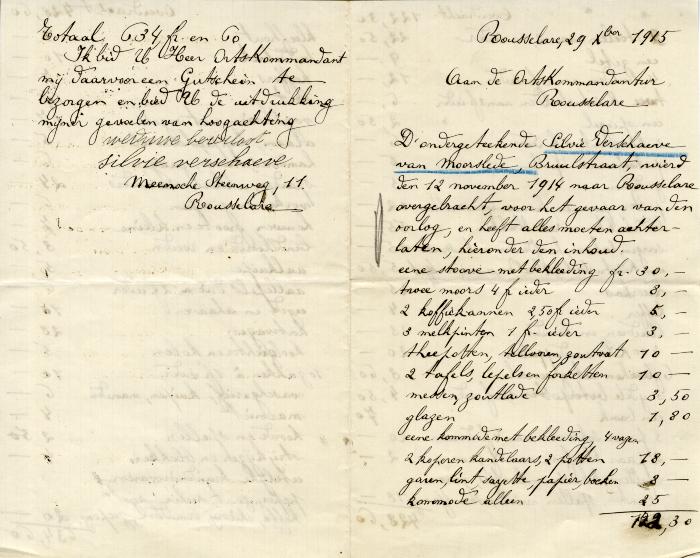 Rousselare, 29 Xber 1915
Aan de Ortskommandantur
Rousselare
D'ondergeteekende Silvie Verschaeve
van Moorslede, Bruulstraat, wierd
den 12 november 1914 naar Rousselare
overgebracht, voor het gevaar van den
oorlog, en heeft alles moeten achter-
laten, hieronder den inhoud.
eene stoove met bekleeding fr. 30,-
twee moors 4 fr ieder 8,-
2 koffiekannen 2,50 fr ieder 5,-
3 melkpinten 1 fr. ieder 3,-
theepotten, tellooren, zoutvat 10 -
2 tafels, lepels en forketten 10 -
messen, zoutlade 8,50
glazen 1,80
eene kommode met bekleeding,
2 koperen kandelaars, 2 potten 18,-
garen, lint sayette, papier, boeken 3 -
kommode alleen 25
122,30
Totaal 634 fr. en 60
Ik bid U Heer Ortskommandant
mij daarvoor een Gutschein te
bezorgen en bied U de uitdrukking
mijner gevoelen van hoogachting
weduwe
silvie verschaeve
Meenche Steenweg, 11.
Rousselare